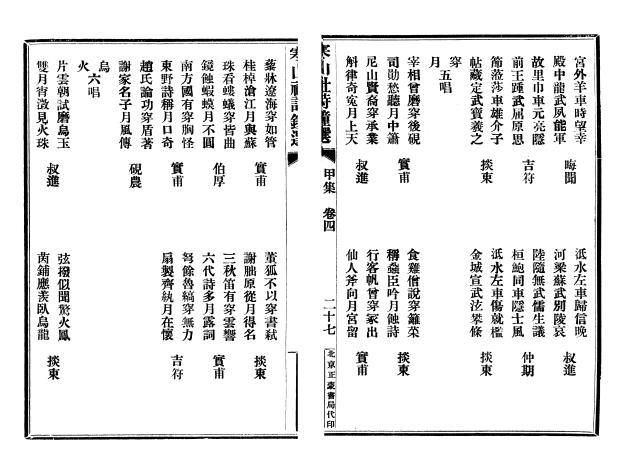 宮外羊車時望幸
殿中龍武夙能軍 晦聞
泜水左車歸信晚
河梁蘇武別陵哀 叔進
故里巾車元亮隱
前王踵武屈原思 吉符
陸隨無武儒生議
桓鮑同車隱士風 仲期
莎車雄介子
帖藏定武寶羲之 掞東
泜水左車傷就檻
金城宣武泫攀條
穿月 五唱
宰相曾磨穿後硯
司勛愁聽月中簫 實甫
食雞僧說穿籬菜
稱蟲臣吟月蝕詩
尼山賢裔穿承業
斛律奇寃月上天 叔進
行客帆曾穿豕出
仙人斧向月宮留 實甫
寒山社詩鐘選 甲集 卷四 二十七
北京正蒙書局代印
寒山社詩鐘選
藜牀遼海穿如管
桂棹滄江月與蘇 實甫
董狐不以穿書弒
謝朏原從月得名 掞東
珠看螻蟻穿皆曲
鏡蝕蝦蟆月不圓 伯厚
三秋笛有穿雲響
六代詩多月露詞 實甫
南方國有穿胸怪
東野詩稱月口奇 實甫
弩餘魯縞穿無力
扇製齊紈月在懷 吉符
趙氏論功穿盾著
謝家名子月風傳 硯農
烏火 六唱
片雲朝試磨烏玉
雙月宵澂見火珠 叔進
弦撥似聞驚火鳳
茵鋪應羨臥烏龍 掞東